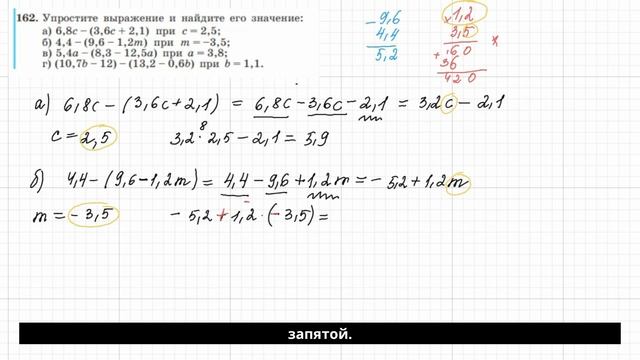 162. Упростите выражение и найдите его значение:
а) 6,8c – (3,6c + 2,1) при c = 2,5;
б) 4,4 – (9,6 – 1,2m) при m = –3,5;
в) 5,4a – (8,3 – 12,5a) при a = 3,8;
г) (10,7b – 12) – (13,2 – 0,6b) при b = 1,1.
– 9,6
4,4
5,2
× 1,2
3,5 ×
+ 60
36
420
а) 6,8c – (3,6c + 2,1) = 6,8c – 3,6c – 2,1 = 3,2c – 2,1
c = 2,5 3,2 · 2,5 – 2,1 = 5,9
8
б) 4,4 – (9,6 – 1,2m) = 4,4 – 9,6 + 1,2m = – 5,2 + 1,2m
m = – 3,5 – 5,2 + 1,2 · (– 3,5) =
запятой.